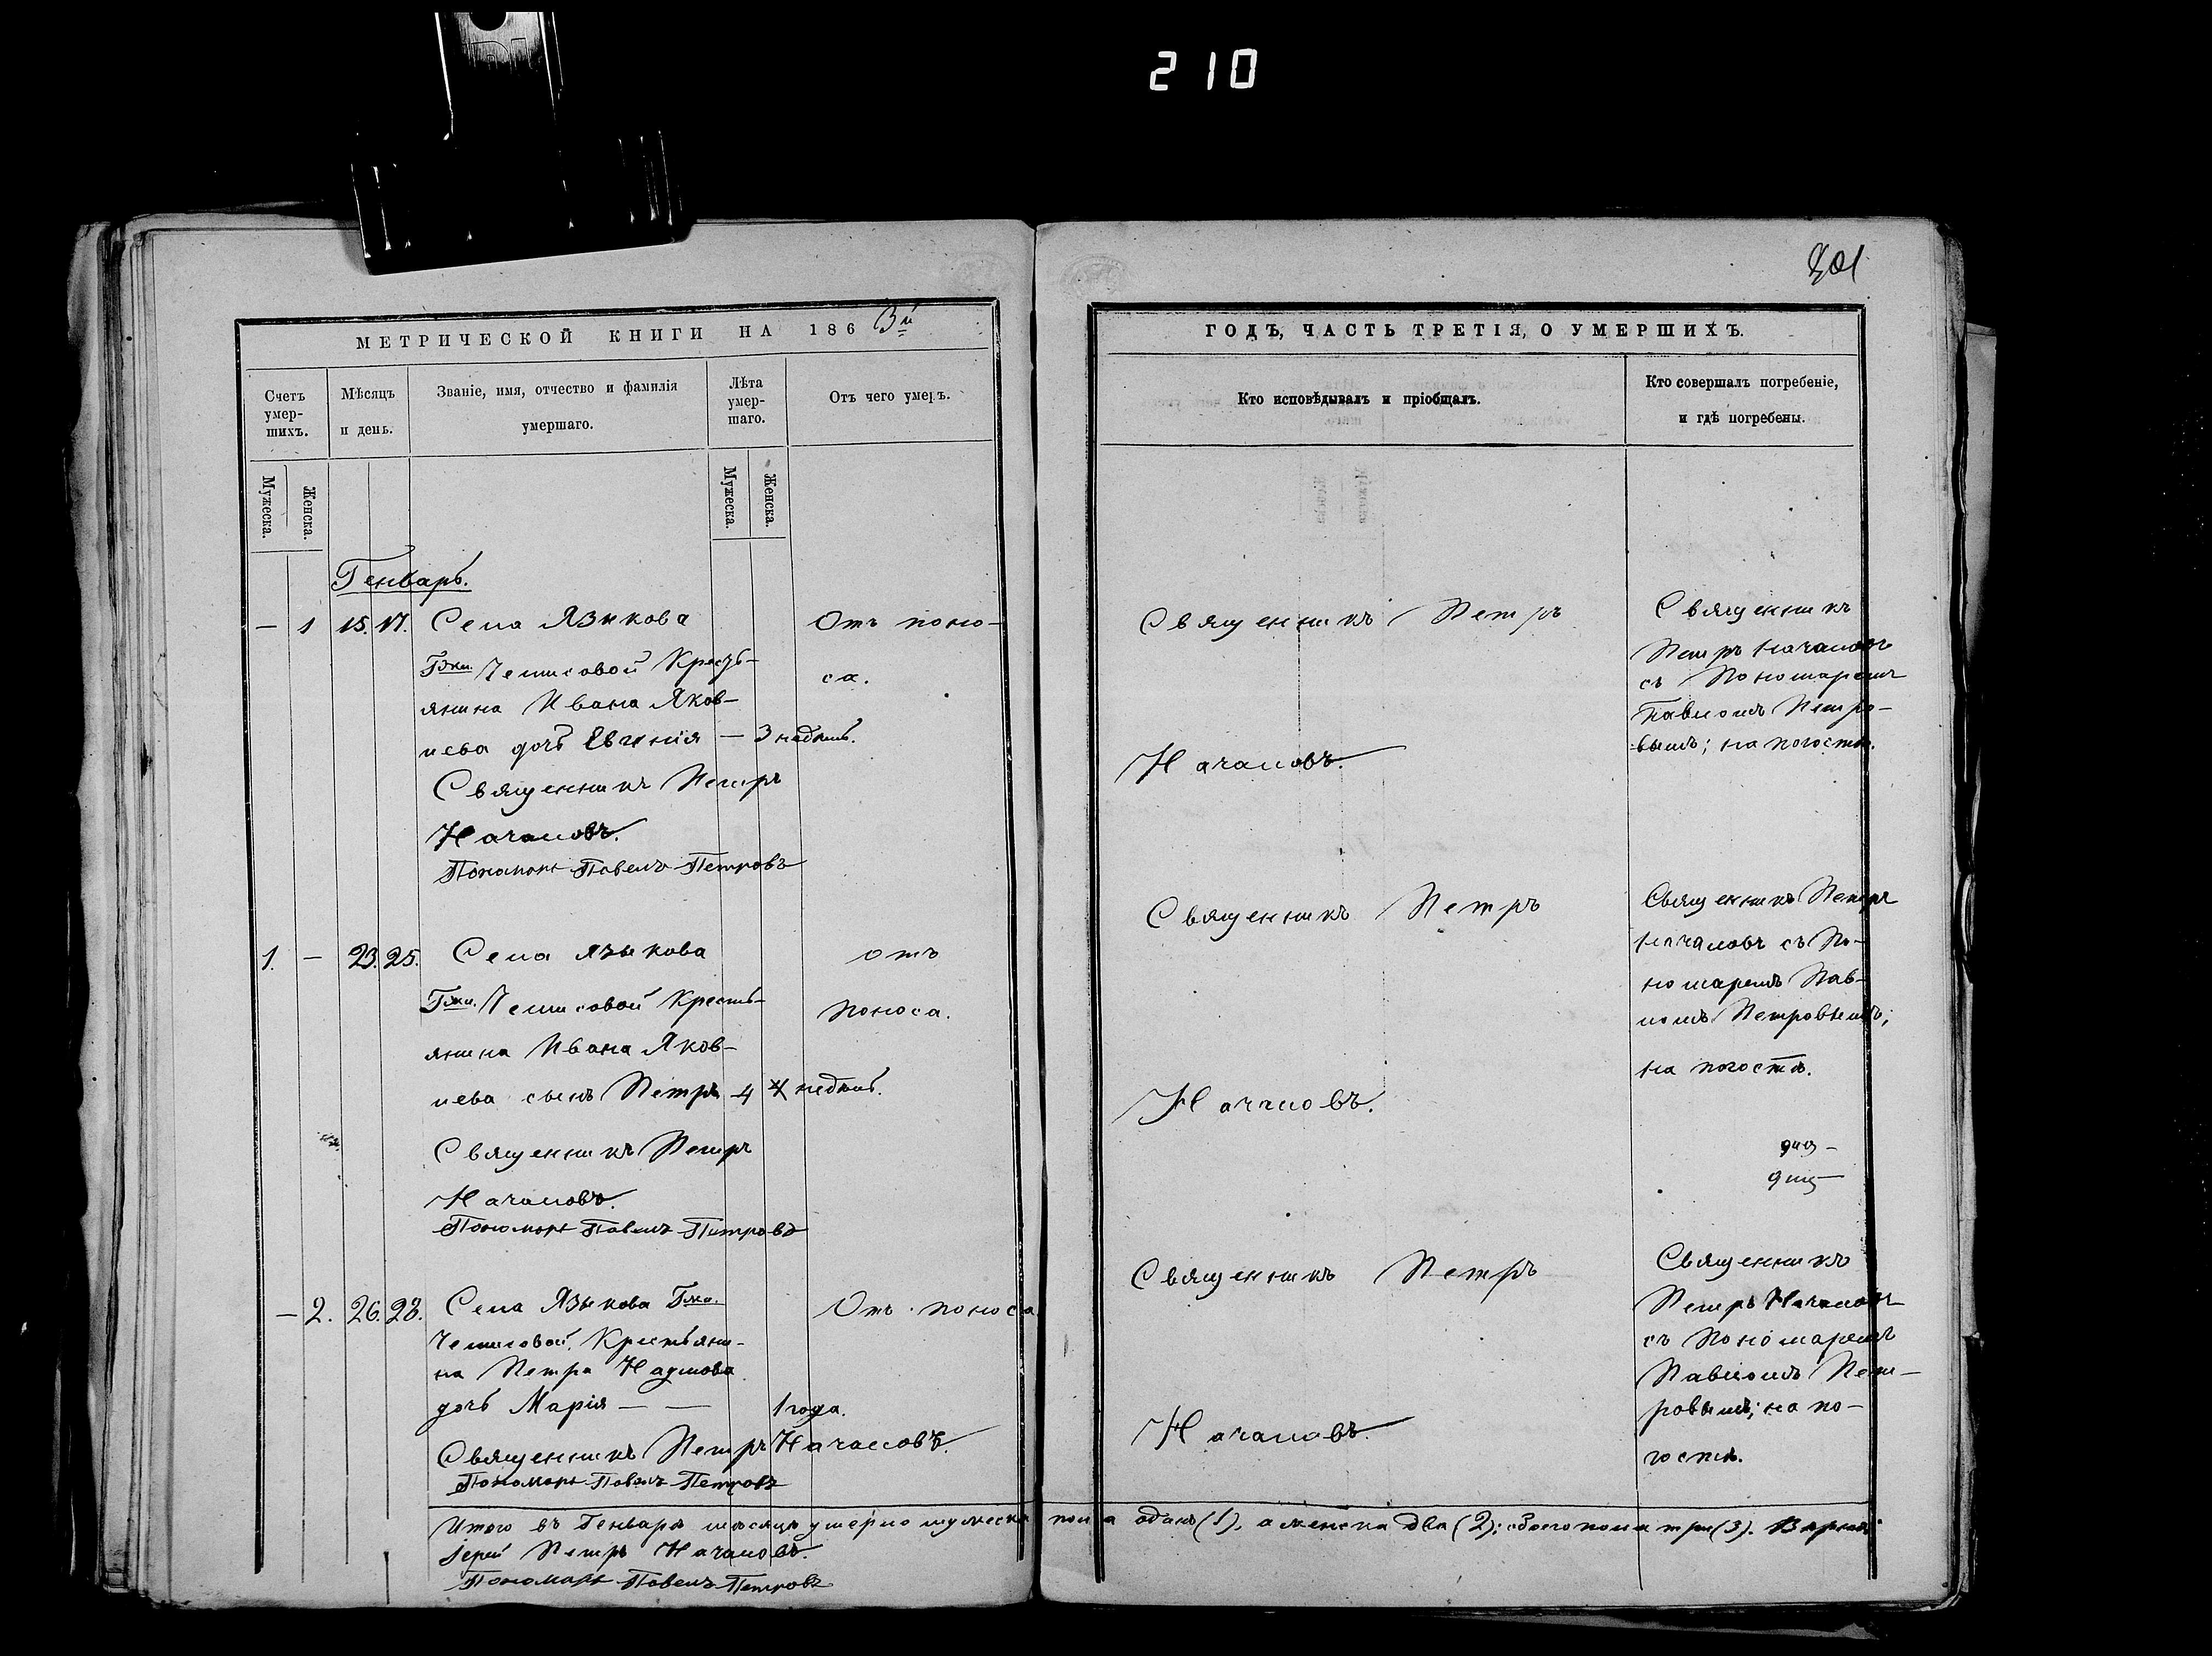 210
801
МЕТРИЧЕСКОЙ КНИГИ НА 1863й
ГОДЪ, ЧАСТЬ ТРЕТІЯ, О УМЕРШИХЪ.
Счетъ умер-шихъ.
Мѣсяцъ и день.
Званіе, имя, отчество и фамилія умершаго.
Лѣта умер-шаго.
Отъ чего умеръ.
Кто исповѣдывалъ и пріобщалъ.
Кто совершалъ погребеніе, и гдѣ погребены.
Мужеска.
Женска.
Мужеска.
Женска.
Генварь.
— 1 15. 17. Села Языкова
Гжи Чемисовой Кресть-
янина Ивана Яков-
лева дочь Евгенія — 3 недѣль.
Отъ поно-
са.
Священникъ Петръ
Началовъ.
Пономарь Павелъ Петровъ
Священникъ Петръ
Началовъ.
Священникъ
Петръ Началовъ
съ Пономаремъ
Павломъ Петро-
вымъ; на погостѣ.
1. — 23. 25. Села Языкова
Гжи Чемисовой Кресть-
янина Ивана Яков-
лева сынъ Петръ 4 недѣль.
отъ
поноса.
Священникъ Петръ
Началовъ.
Пономарь Павелъ Петровъ
Священникъ Петръ
Началовъ.
Священникъ Петръ
Началовъ съ По-
номаремъ Пав-
ломъ Петровымъ;
на погостѣ.
— 2. 26. 28. Села Языкова Гжи
Чемисовой Крестьяни-
на Петра Наумова
дочь Марія — — 1 года.
Отъ поноса
Священникъ Петръ Началовъ.
Пономарь Павелъ Петровъ
Священникъ Петръ
Началовъ.
Священникъ
Петръ Началовъ
съ Пономаремъ
Павломъ Пет-
ровымъ; на по-
гостѣ.
Итого въ Генварѣ мѣсяцѣ умерло мужеска пола одинъ (1), а женска два (2); обоего пола три (3). Вѣрно:
Іерей Петръ Началовъ.
Пономарь Павелъ Петровъ